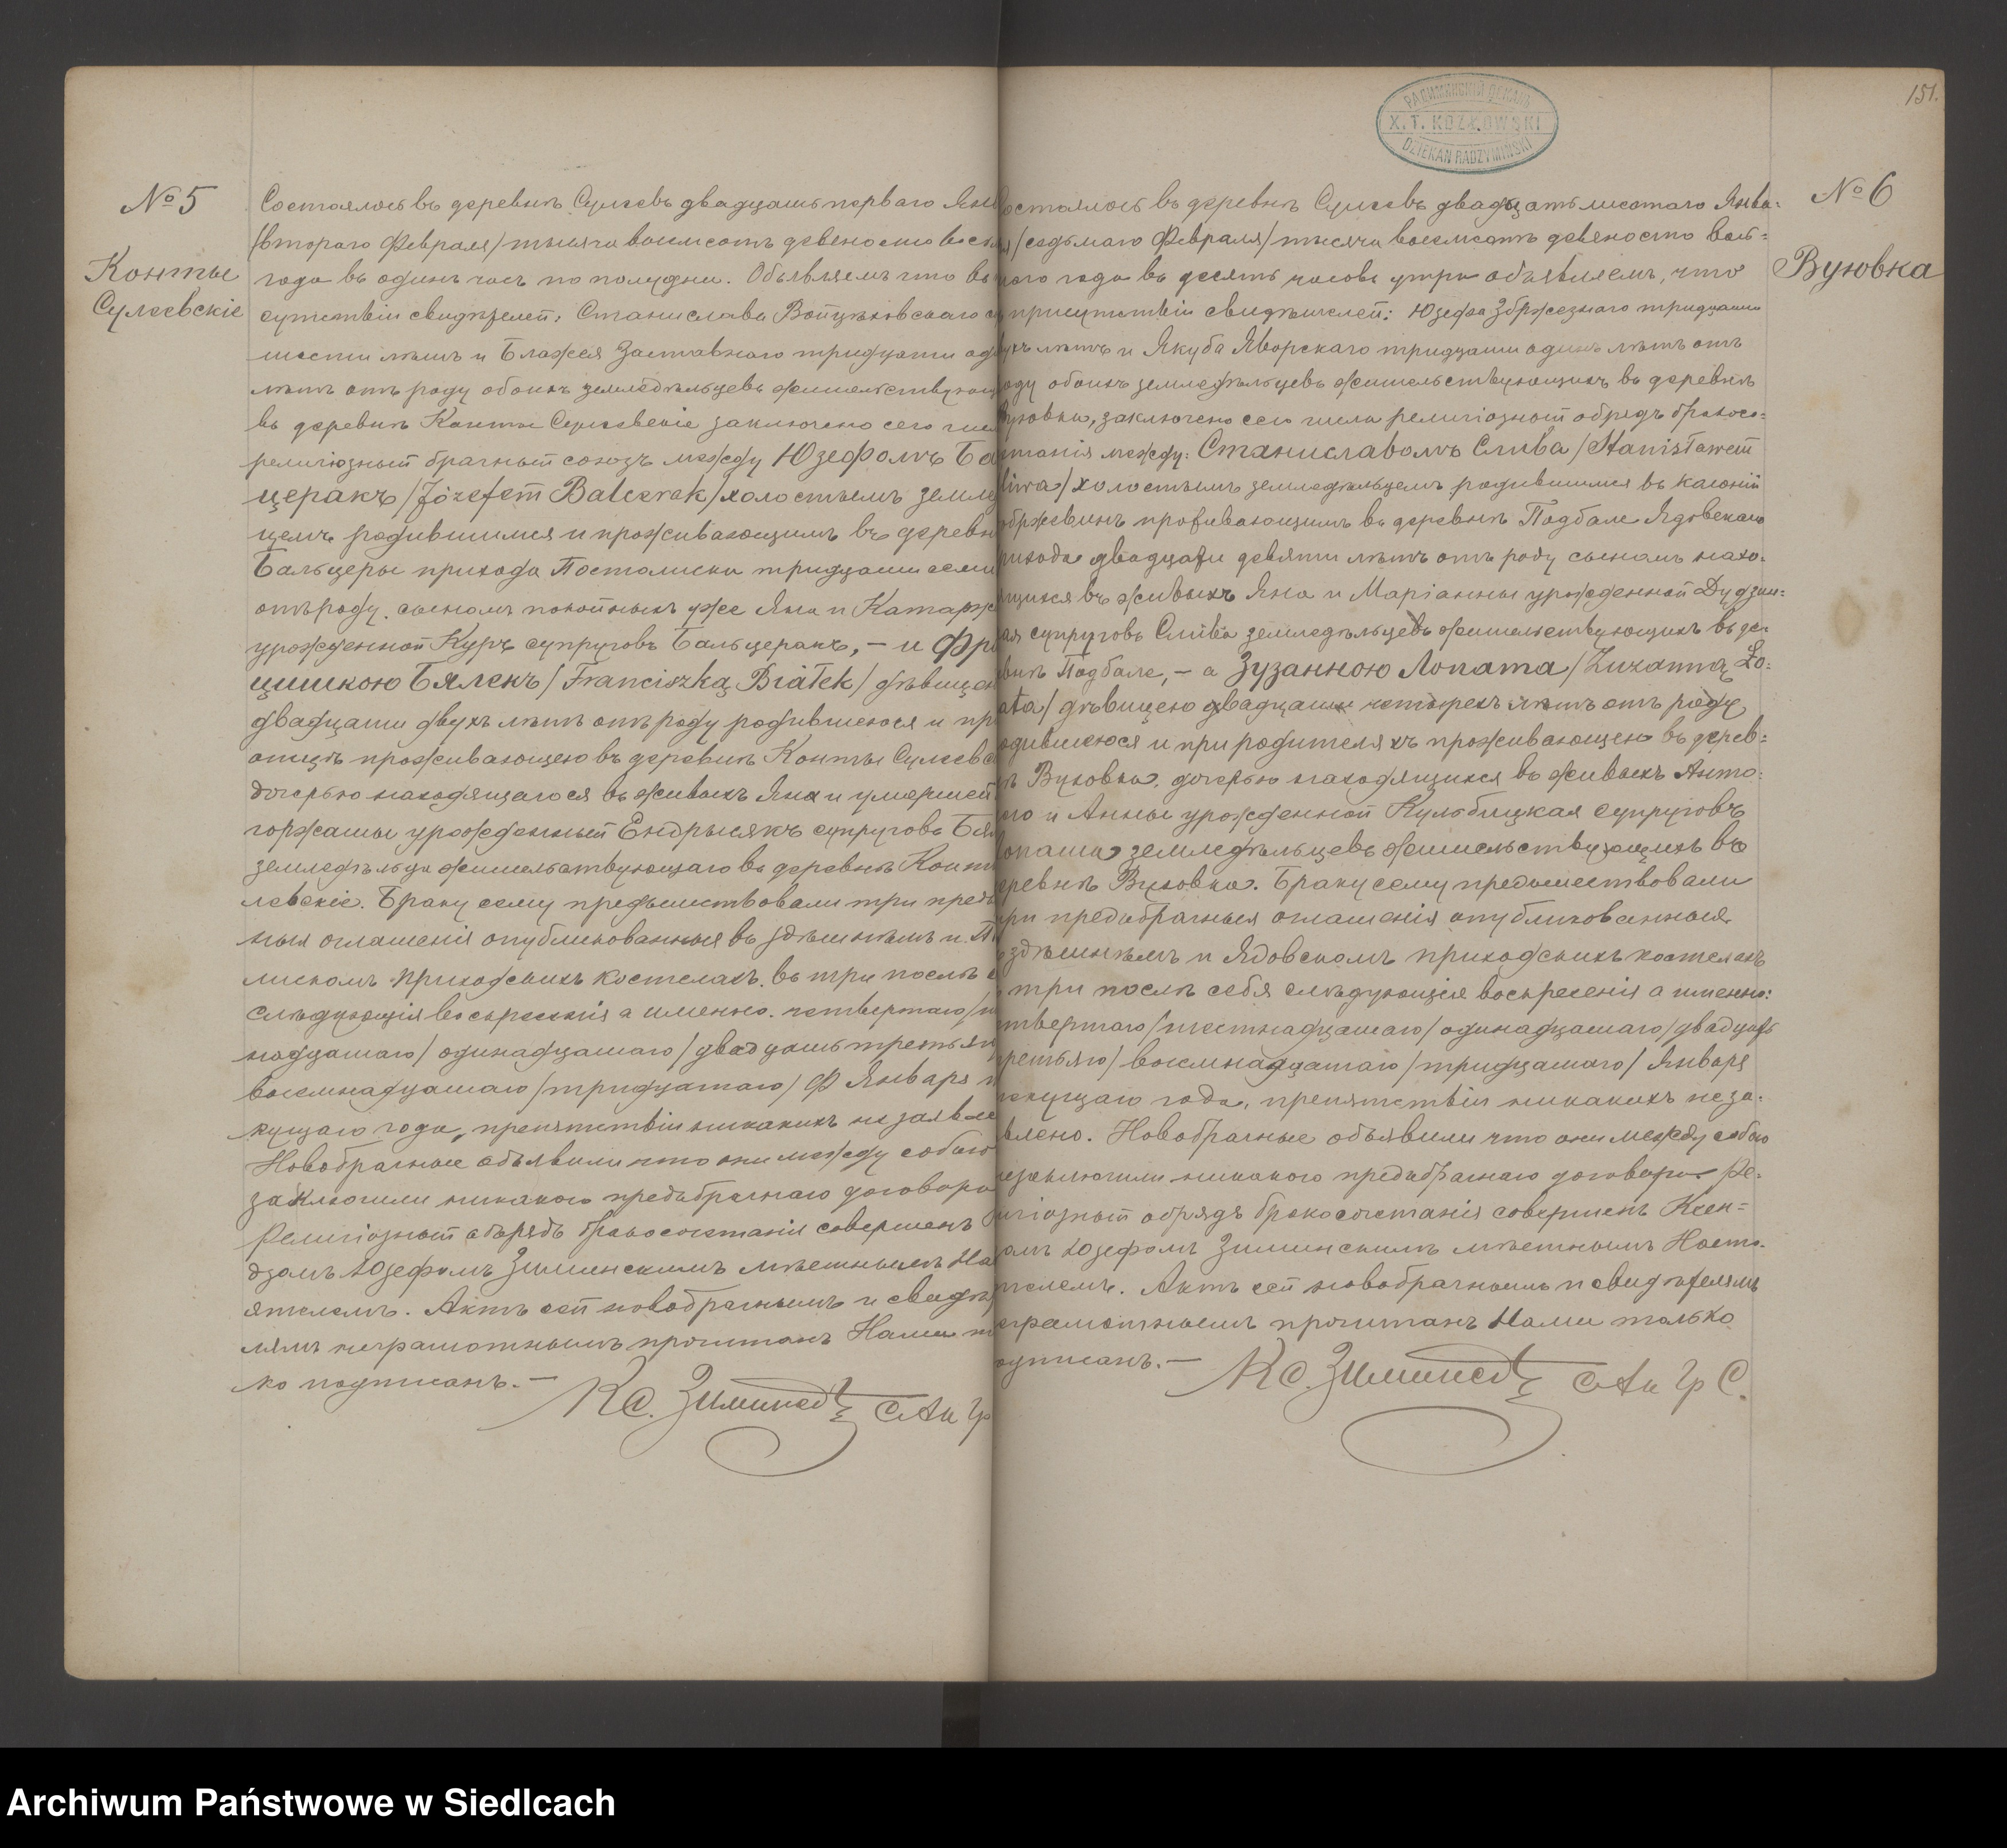 № 5
Контые
Сулеевскіе
Состоялось въ деревнѣ Сулеевъ двадцать перваго Янв
/втораго Февраля/ тысяча восемсотъ девяносто восьм
года въ одинъ часъ по полудни. Объявляемъ что въ
сутствіи свидѣтелей, Станислава Войцѣховскаго
шести лѣтъ и Блажея Заставнаго тридцати од
лѣтъ отъ роду обоихъ земледѣльцевъ жительствующ
въ деревнѣ Контые Сулеевскіе заключено сего чис
религіозный брачный союзъ между Юзефомъ Ба
церакъ /Józefem Balcerak/ холостымъ земле
цемъ родившимся и проживающимъ въ деревн
Бальцеры прихода Постолиска тридцати семи
отъ роду, сыномъ покойныхъ уже Яна и Катарж
урожденной Куръ супруговъ Бальцеракъ, – и Фра
цишкою Бялекъ /Franciszką Białek/ дѣвицею
двадцати двухъ лѣтъ отъ роду родившеюся и при
отцѣ проживающею въ деревнѣ Контые Сулеевс
дочерью находящагося въ живыхъ Яна и умершей
горжаты урожденный Ендрысякъ супруговъ Бял
земледѣльца жительствующаго въ деревнѣ Конт
леевскіе. Браку сему предшествовали три предъ
ныя оглашенія опубликованныя въ здѣшнемъ и П
лискомъ приходскихъ костелахъ въ три послѣ с
слѣдующія воскресенія а именно: четвертаго /ш
надцатаго/ одинадцатаго /двадцать третьяго
восемнадцатаго /тридцатаго/ Ф Января т
кущаго года, препятствіи никакихъ не заявле
Новобрачные объявили что они между собою
заключили никакого предъбрачнаго договора
Религіозный обрядъ бракосочетанія совершенъ
дзомъ Юзефомъ Зиминскимъ мѣстнымъ На
ятелемъ. Актъ сей новобрачнымъ и свидѣт
лямъ неграмотнымъ прочитанъ Нами т
ко подписанъ. –
Кс. Зиминск САк Гр
151.
РАДИМИНСКІЙ ДЕКАНЪ
X. T. KOZŁOWSKI
DZIEKAN RADZYMIŃSKI
№ 6
Вуювка
остоялось въ деревнѣ Сулеевъ двадцать шестаго Янва-
я /седьмаго Февраля/ тысяча восемсотъ девяносто вось-
маго года въ десять часовъ утра объявляемъ, что
присутствіи свидѣтелей: Юзефа Збржезнаго тридцати
ухъ лѣтъ и Якуба Яворскаго тридцати одинъ лѣтъ отъ
оду обоихъ земледѣльцевъ жительствующихъ въ деревнѣ
Вуювка, заключено сего числа религіозный обрядъ бракосо-
танія между: Станиславомъ Слива /Stanisławem
liwa/ холостымъ земледѣльцемъ родившимся въ
проживающимъ въ деревнѣ Подбале Ядовскаго
рихода двадцати девяти лѣтъ отъ роду сыномъ нахо-
ящихся въ живыхъ Яна и Маріанны урожденной Дудзин-
ая супруговъ Слива земледѣльцевъ жительствующихъ въ де-
внѣ Подбале, – а Зузанною Лопата /Zuzanną Ło-
ata/ дѣвицею двадцати четырехъ лѣтъ отъ роду,
одившеюся и при родителяхъ проживающею въ дерев-
ѣ Вуювка, дочерью находящихся въ живыхъ Анто-
ого и Анны урожденной Кульбицкая супруговъ
опата земледѣльцевъ жительствующихъ въ
еревнѣ Вуювка. Браку сему предшествовали
ри предъбрачныя оглашенія опубликованныя
здѣшнемъ и Ядовскомъ приходскихъ костелахъ
три послѣ себя слѣдующія воскресенія а именно:
твертаго /шестнадцатаго/ одинадцатаго /двадцать
ретьяго/ восемнадцатаго /тридцатаго/ Января
екущаго года, препятствіи никакихъ не за-
влено. Новобрачные объявили что они между собою
незаключили никакого предъбрачнаго договора. Ре-
игіозный обрядъ бракосочетанія совершенъ Ксен-
омъ Юзефомъ Зиминскимъ мѣстнымъ Насто-
телемъ. Актъ сей новобрачнымъ и свидѣтелямъ
еграмотнымъ прочитанъ Нами только
одписанъ. –
Кс. Зиминск САк Гр С.
Archiwum Państwowe w Siedlcach